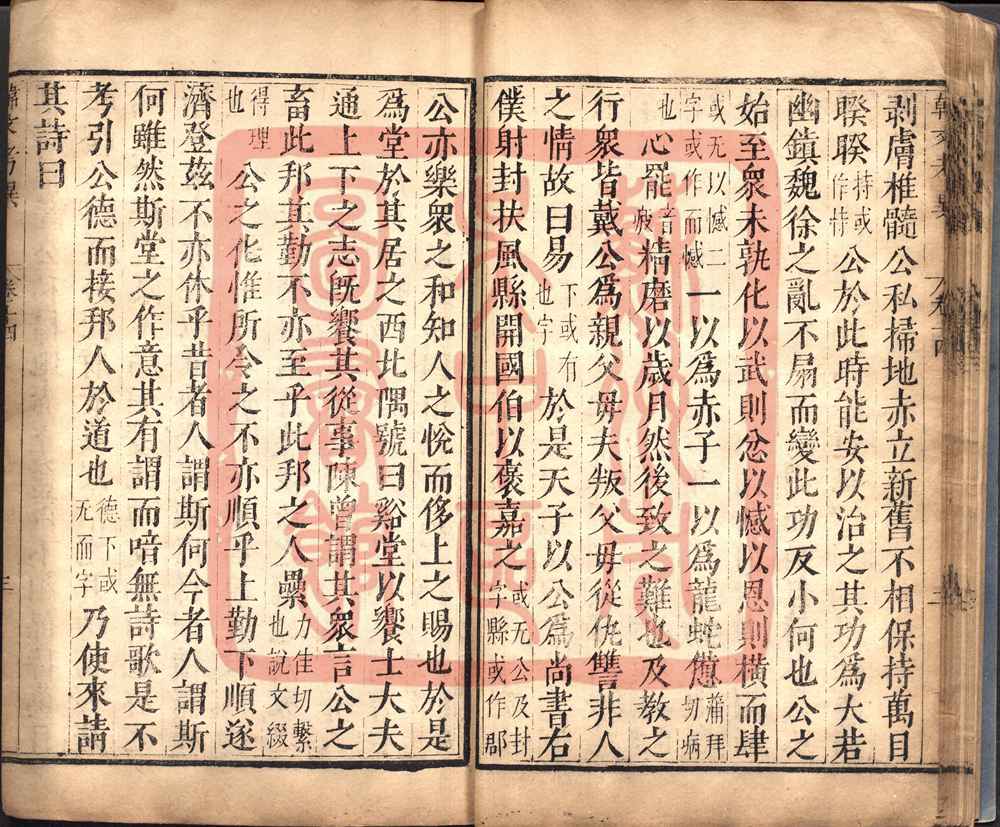 剥膚椎髓公私掃地赤立新舊不相保持萬目
睽睽持或作恃公於此時能安以治之其功爲大若
幽鎮魏徐之亂不扇而變此功反小何也公之
始至衆未孰化以武則忿以憾以恩則橫而肆
或无以憾二字或作而憾一以爲赤子一以爲龍蛇憊蒲拜切病
也心罷音疲精磨以歲月然後致之難也及教之
行衆皆戴公爲親父母夫叛父母從仇讐非人
之情故曰易下或有也字於是天子以公爲尚書右
僕射封扶風縣開國伯以褒嘉之或无公及封字縣或作郡
公亦樂衆之和知人之悅而侈上之賜也於是
爲堂於其居之西北隅號曰谿堂以饗士大夫
通上下之志旣饗其從事陳曾謂其衆言公之
畜此邦其勤不亦至乎此邦之人纍力住切繫也說文綴
得理也公之化惟所令之不亦順乎上勤下順遂
濟登茲不亦休乎昔者人謂斯何今者人謂斯
何雖然斯堂之作意其有謂而喑無詩歌是不
考引公德而接邦人於道也德下或无而字乃使來請
其詩曰